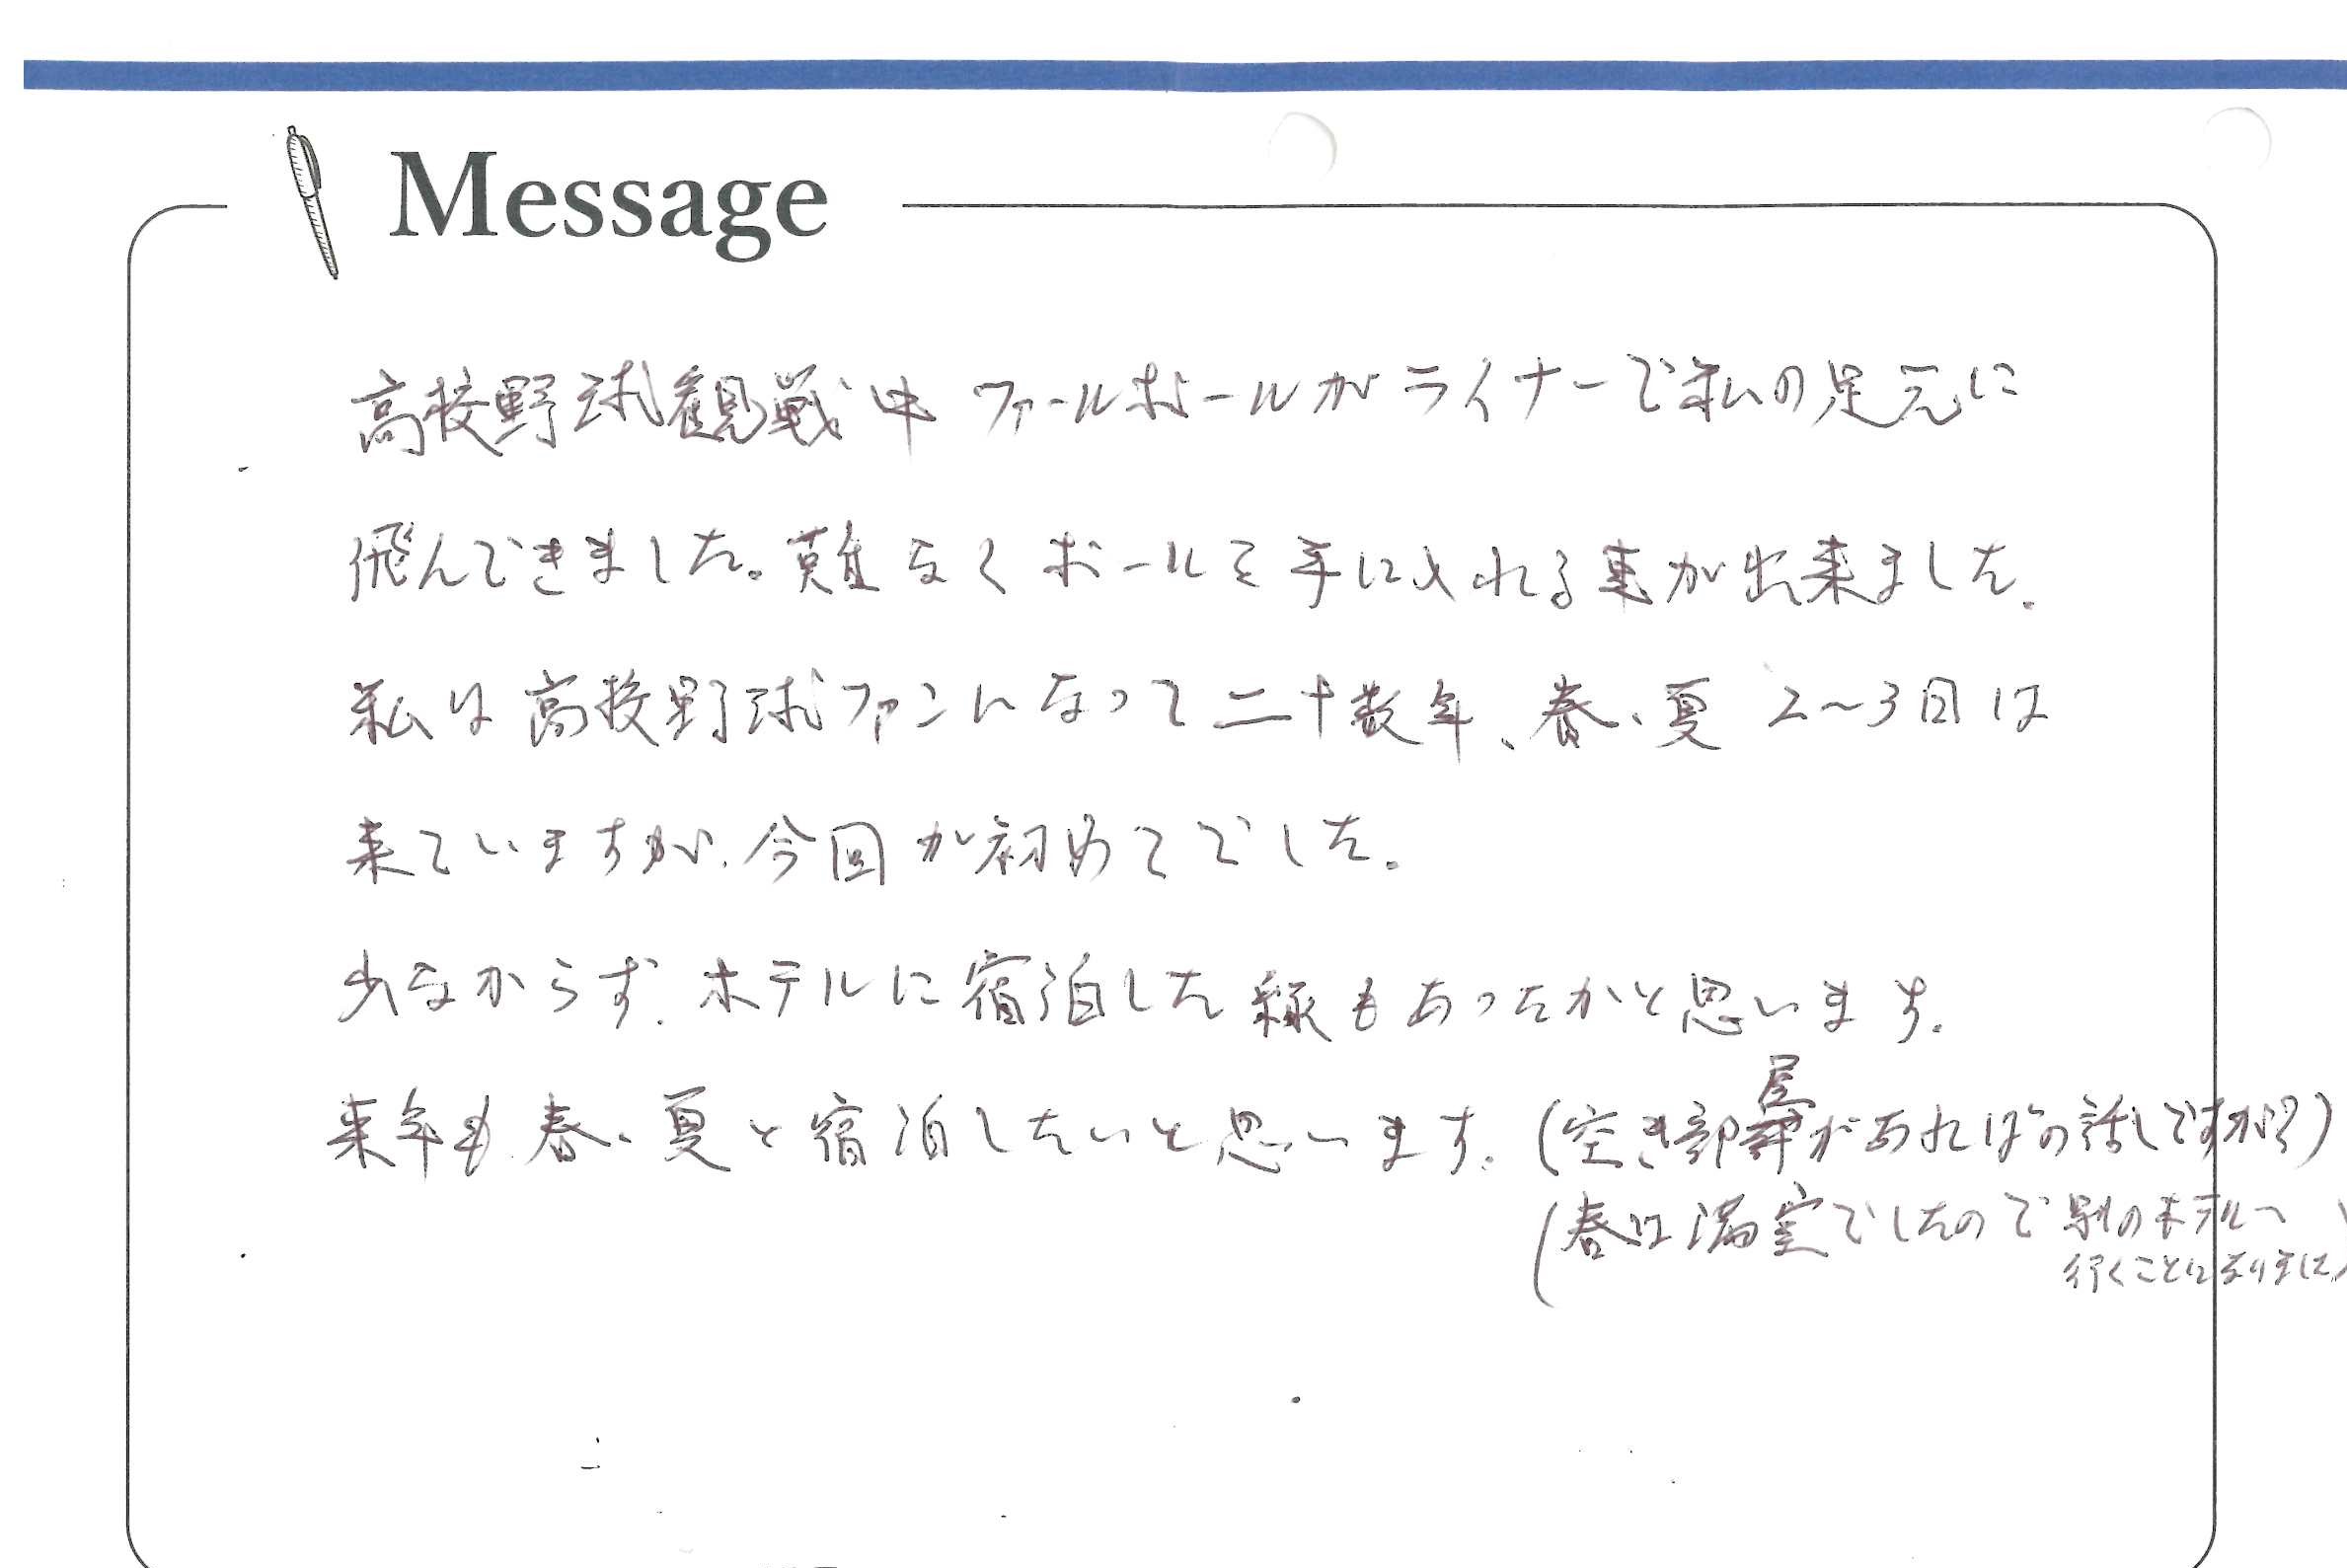 Message
高校野球観戦中 ファールボールがライナーで私の足元に
飛んできました。難なくボールを手に入れる事が出来ました。
私は高校野球ファンになって二十数年、春、夏 2〜3回は
来ていますが、今回が初めてでした。
少なからず、ホテルに宿泊した縁もあったかと思います。
来年も春、夏と宿泊したいと思います。(空き部屋があればの話しですが?)
(春は満室でしたので別のホテルへ
行くことになりました)